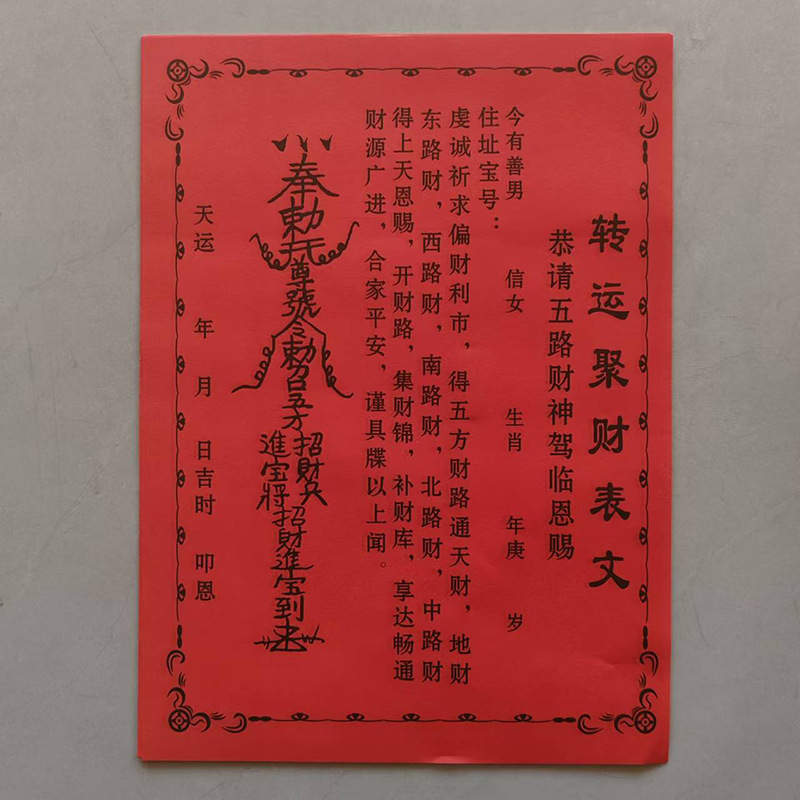 转运聚财表文
恭请五路财神驾临恩赐
今有善男 信女 生肖 年庚 岁
住址宝号：
虔诚祈求偏财利市，得五方财路通天财，地财
东路财，西路财，南路财，北路财，中路财
得上天恩赐，开财路，集财锦，补财库，享达畅通
财源广进，合家平安，谨具牒以上闻。
奉勅
尊號
令勅召五方
招財兵
進宝將
招財進宝到
天运 年 月 日吉时 叩恩